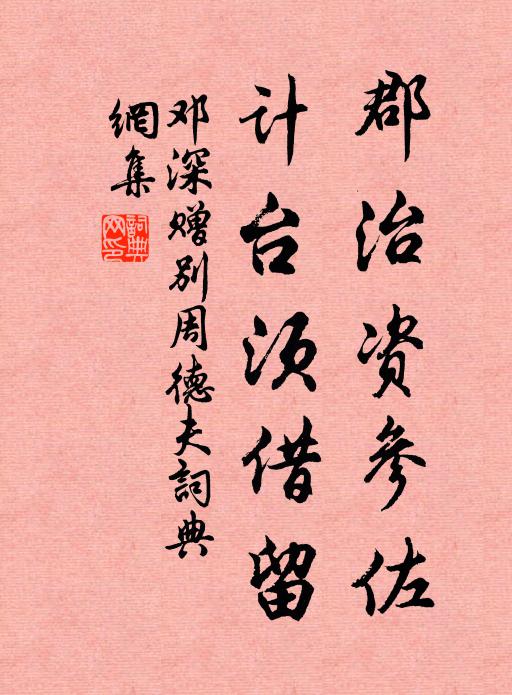 郡治资参佐
计台须借留
邓深赠别周德夫詞典
網集
詞典网印